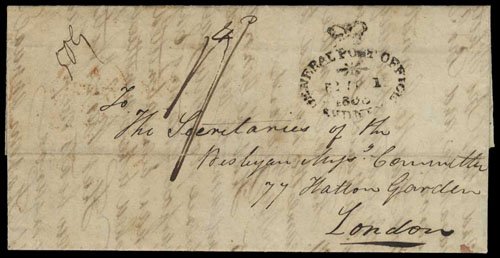 GENERAL POST OFFICE
1
SYDNEY
To
The Secretaries of the
Wesleyan Missy Committee
77 Hatton Garden
London